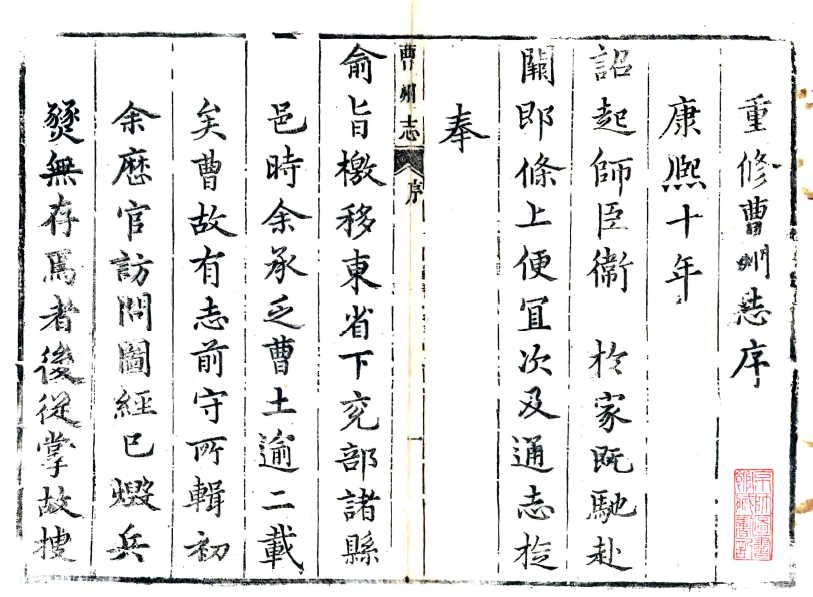 重修曹州志序
康熈十年
詔起師臣衞 於家既馳赴
闕即條上便宜次及通志旋
奉
曹州志 序 一
俞旨檄移東省下兖部諸縣
邑時余承乏曹土逾二載
矣曹故有志前守所輯初
余歴官訪問圖經已燬兵
燹無存焉者後従掌故搜